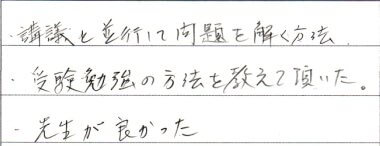 ・講議と並行して問題を解く方法
・受験勉強の方法を教えて頂いた。
・先生が良かった